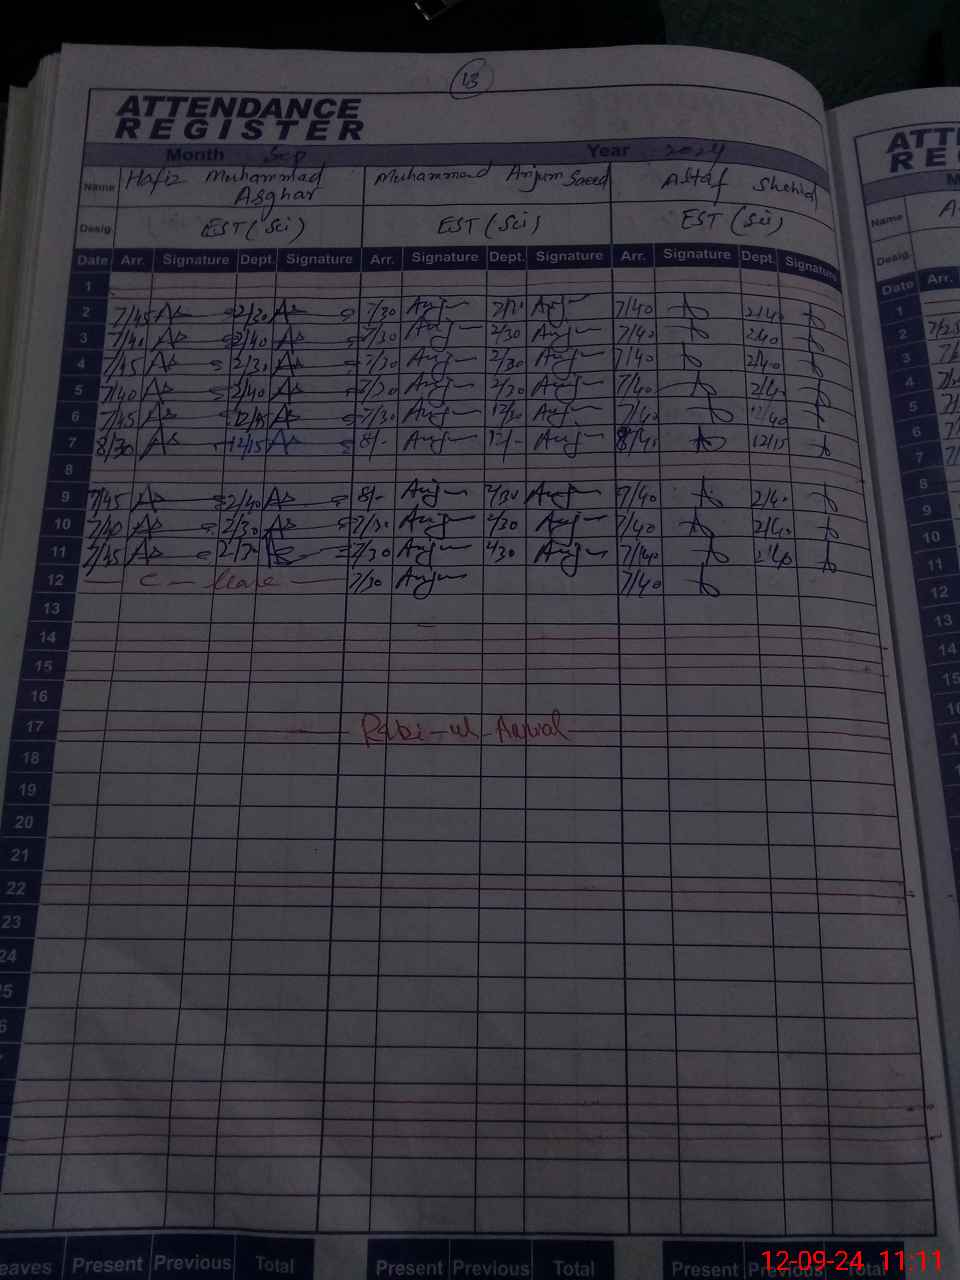 13
ATTENDANCE
REGISTER
Month Sep Year 2024
Name Hafiz Muhammad Asghar Muhammad Anjum Saeed Altaf Shahid
Desig EST (Sci) EST (Sci) EST (Sci)
Date Arr. Signature Dept. Signature Arr. Signature Dept. Signature Arr. Signature Dept. Signature
1
2 7/45 2/30 7/30 Anjum Anjum 7/40 2/40
3 7/40 2/40 7/30 Anjum 2/30 Anjum 7/40 2/40
4 7/45 2/30 7/30 Anjum 2/30 Anjum 7/40 2/40
5 7/40 2/40 7/30 Anjum 2/30 Anjum 7/40 2/40
6 7/45 12/15 7/30 Anjum 12/30 Anjum 7/40 12/40
7 8/30 12/15 8/- Anjum 12/- Anjum 12/15
8
9 7/45 2/40 8/- Anjum 2/30 Anjum 7/40 2/40
10 7/40 2/30 7/30 Anjum 2/30 Anjum 7/40 2/40
11 7/45 7/30 Anjum 2/30 Anjum 7/40 2/40
12 C - leave 7/30 Anjum 7/40
13
14
15
16
17 Rabi-ul-Awwal
18
19
20
21
22
23
24
5
6
eaves Present Previous Total Present Previous Total Present Previous Total
ATT
RE
Name A
Desig.
Date Arr.
1
2
3
4
5
6
7
8
9
10
11
12
13
14
15
12-09-24 11:11